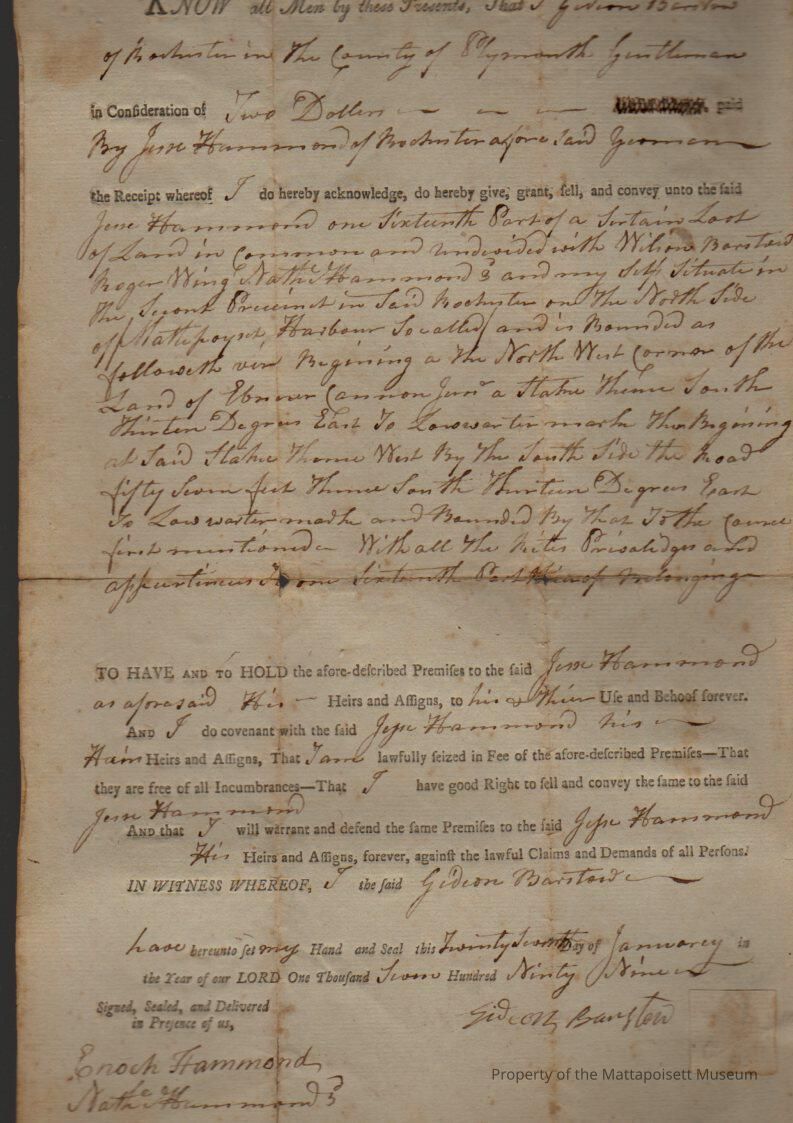 KNOW all Men by these Presents, That I Gideon Barstow
of Rochester in the County of Plymouth Gentleman
in Consideration of Two Dollers paid
By Jesse Hammond of Rochester afore said Yeoman
the Receipt whereof I do hereby acknowledge, do hereby give, grant, sell, and convey unto the said
Jesse Hammond one Sixteenth Part of a Sertain Loot
of Land in Common and undivided with Wilson Barstow
Roger Wing Nathl Hammond 3 and my Self Situate in
the Second Precinct in Said Rochester on the North Side
of Mattepoyset Harbour So called and is Bounded as
followeth viz Begining a the North West Corner of the
Land of Ebnezer Cannon Junr a Stake Thence South
Thirteen Degrees East To Lowwarter mark Then Begining
at Said Stake Thence West By the South Side the Road
fifty Seven feet Thence South Thirteen Degrees East
To Low warter mark and Bounded By that To the
first mentioned With all the Rites Privalidges and
one Sixteenth Part Belonging
TO HAVE AND TO HOLD the afore-described Premises to the said Jesse Hammond
as aforesaid His Heirs and Assigns, to his & Thier Use and Behoof forever.
AND I do covenant with the said Jesse Hammond his
Hairs Heirs and Assigns, That I am lawfully seized in Fee of the afore-described Premises—That
they are free of all Incumbrances—That I have good Right to sell and convey the same to the said
Jesse Hammond
AND that I will warrant and defend the same Premises to the said Jesse Hammond
His Heirs and Assigns, forever, against the lawful Claims and Demands of all Persons.
IN WITNESS WHEREOF, I the said Gideon Barstow
have hereunto set my Hand and Seal this Twenty Seventh Day of Januarey in
the Year of our LORD One Thousand Seven Hundred Ninty Nine
Signed, Sealed, and Delivered
in Presence of us,
Gideon Barstow
Enoch Hammond
Nathl Hammond 3
Property of the Mattapoisett Museum